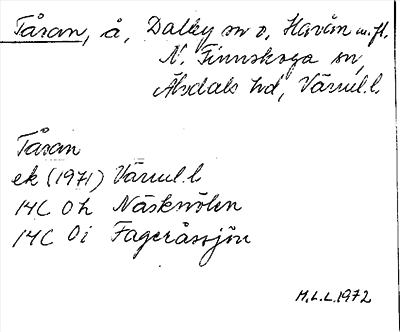 Tåsan, å, Dalby sn o, Havån m.fl.
N. Finnskoga sn,
Älvdals hd, Värml. l.
Tåsan
ek (1971) Värml. l
14C 0h Näsknölen
14C 0i Fageråssjön
M.L.L. 1972